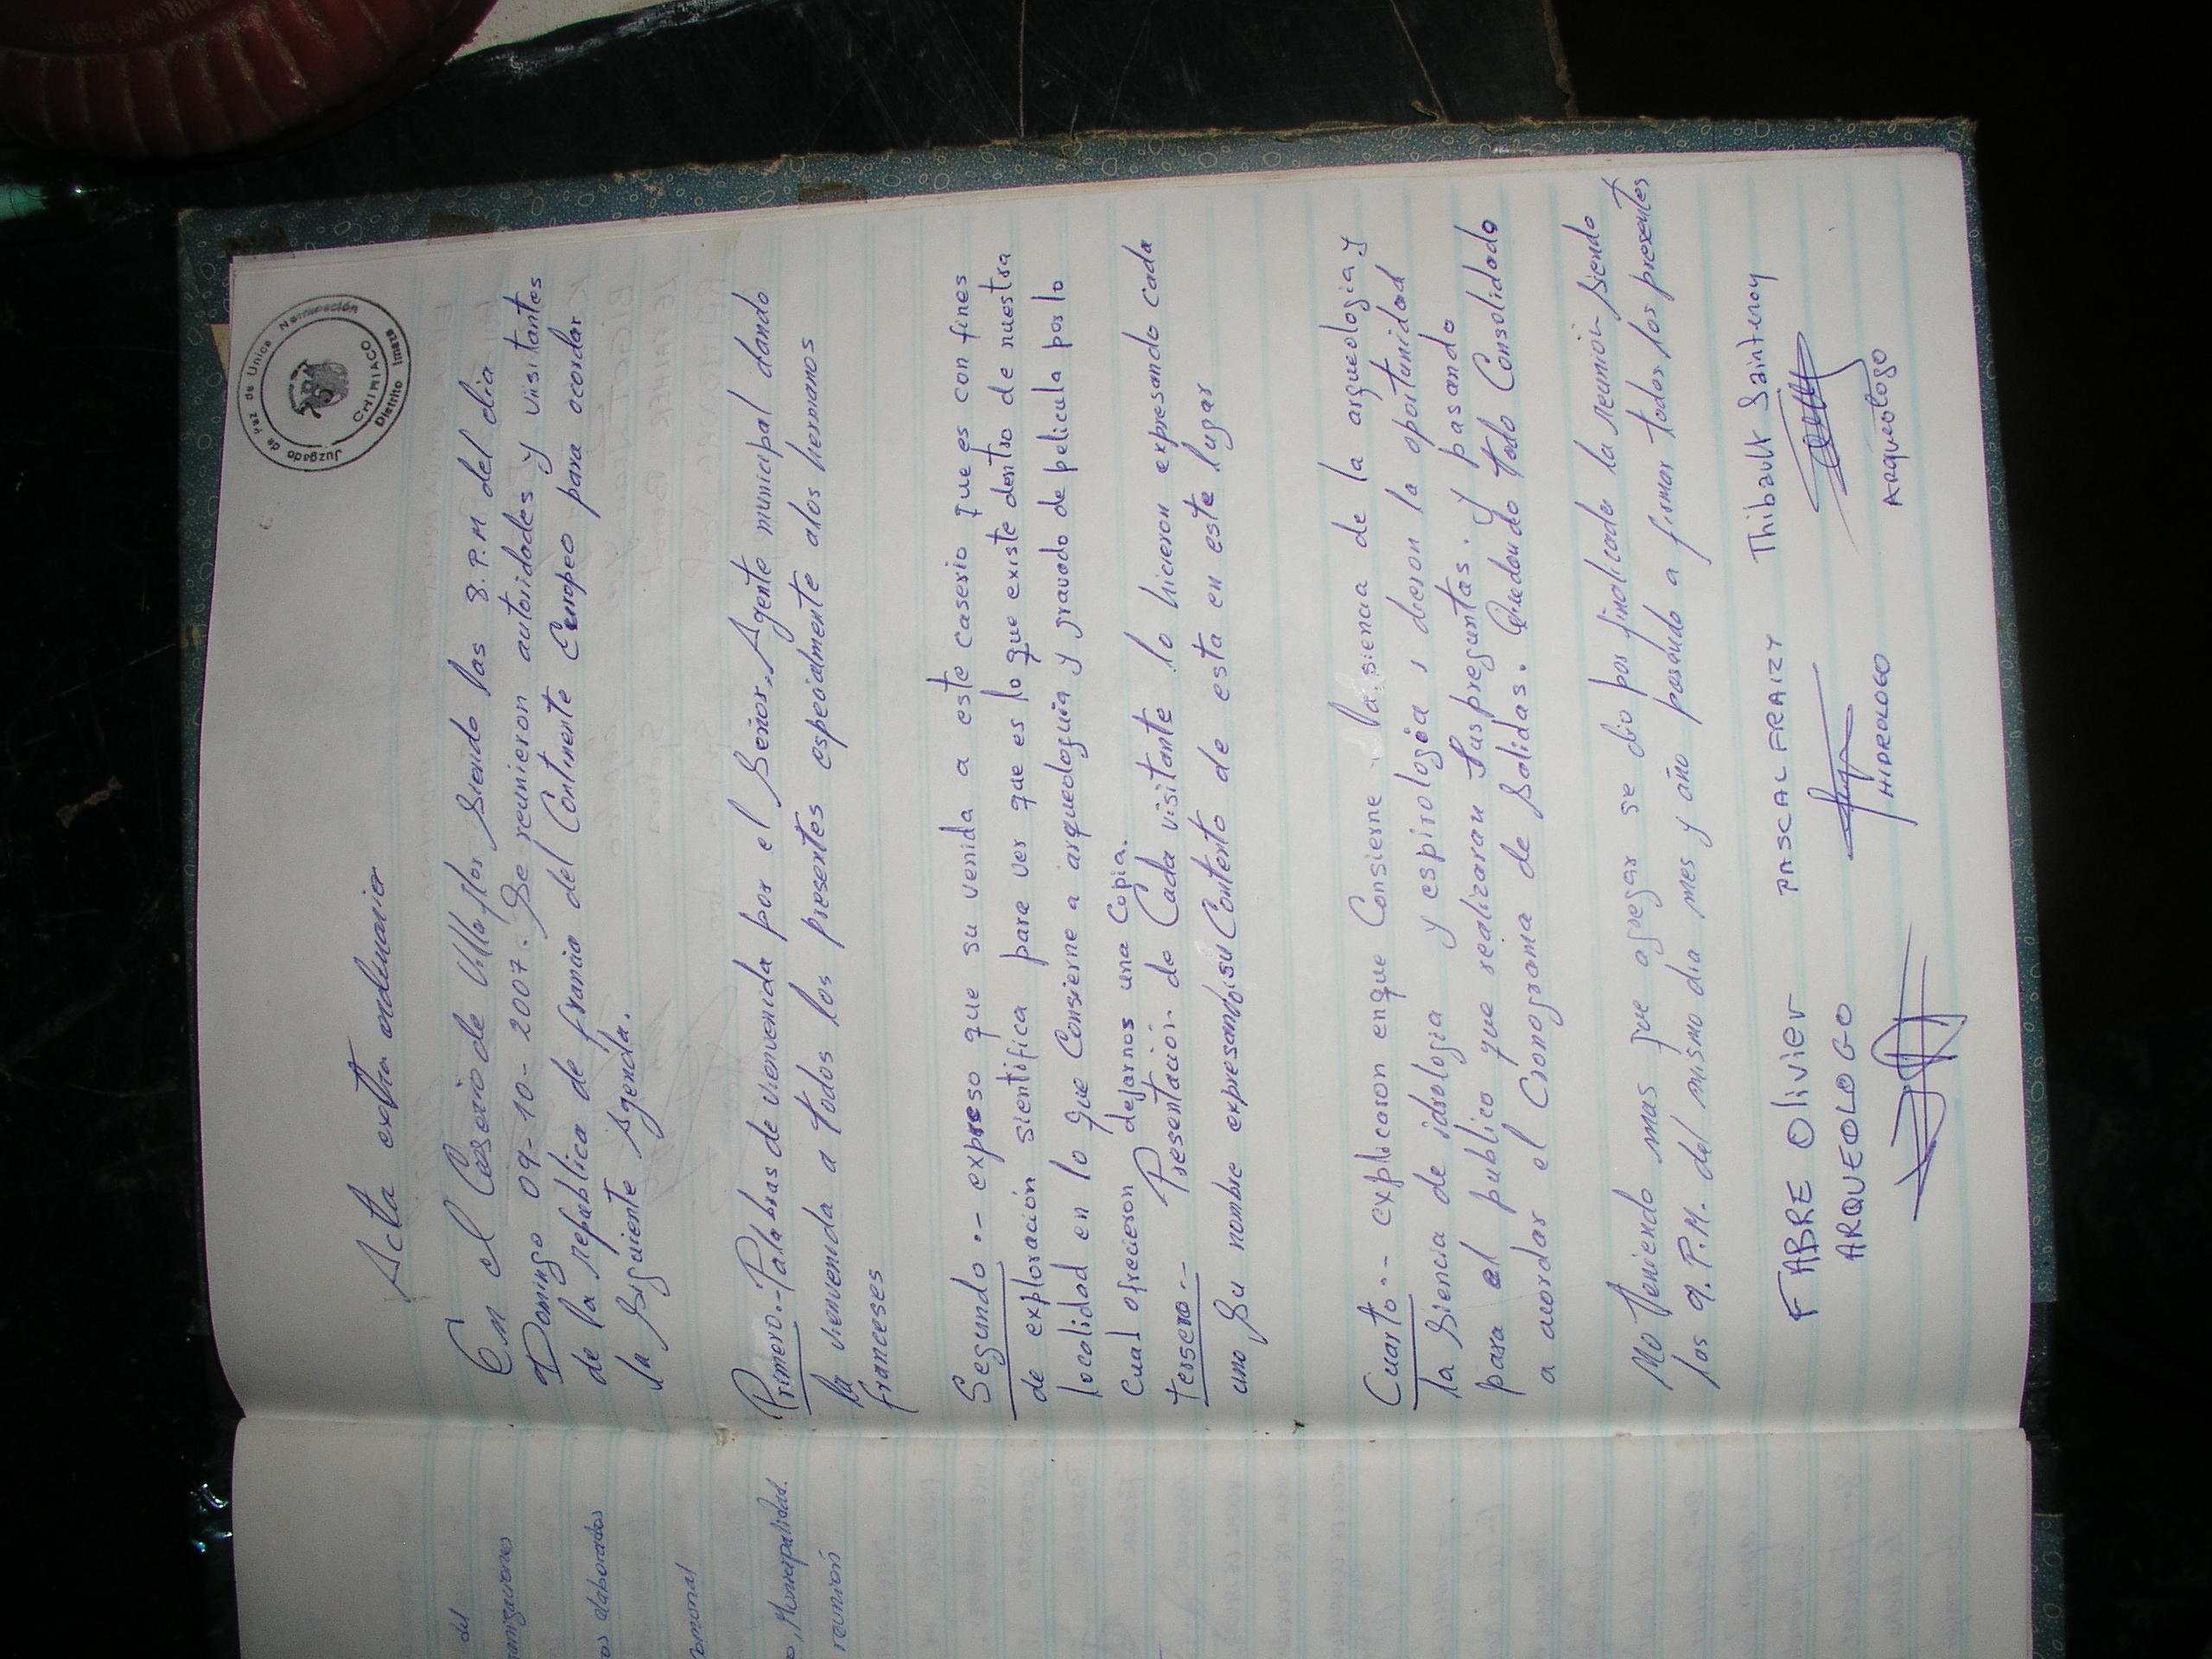 del
organizaciones
elaborados
comunal
, Municipalidad.
reunión
Juzgado de Paz de Unica Nominación
CHIMIACO
Distrito Imaza
Acta extra ordinarier
En el Caserio de Villa flor siendo las 8. P.M del dia
Domingo 09-10-2007. Se reunieron autoridades y visitantes
de la republica de francia del Continente Europeo para acordar
la siguiente Agenda.
Primero.- Palabras de vienvenida por el Señor, Agente municipal dando
la vienvenida a todos los presentes especialmente alos hermanos
franceses
Segundo.- expreso que su venida a este caserio que es con fines
de exploración sientifica para ver que es lo que existe dentro de nuestra
localidad en lo que Consierne a arqueologuia y gravado de pelicula por lo
cual ofrecieron dejarnos una Copia.
tersero.- Presentación de Cada visitante lo hicieron expresando cada
uno su nombre expresando su Contento de esta en este lugar
Cuarto.- explicaron enque Consierne la siencia de la arqueologia y
la siencia de idrologia y espirologia, dieron la oportunidad
para el publico que realizaran sus preguntas. y pasando
a acordar el Cronograma de salidas. Quedando todo Consolidado
No teniendo mas que agregar se dio por finalizado la reunión siendo
las 9. P.M. del mismo dia mes y año pasando a firmar todos los presentes
FABRE Olivier
ARQUEOLOGO
PASCAL FRAIZY
HIDROLOGO
Thibault Saintenoy
Arqueologo